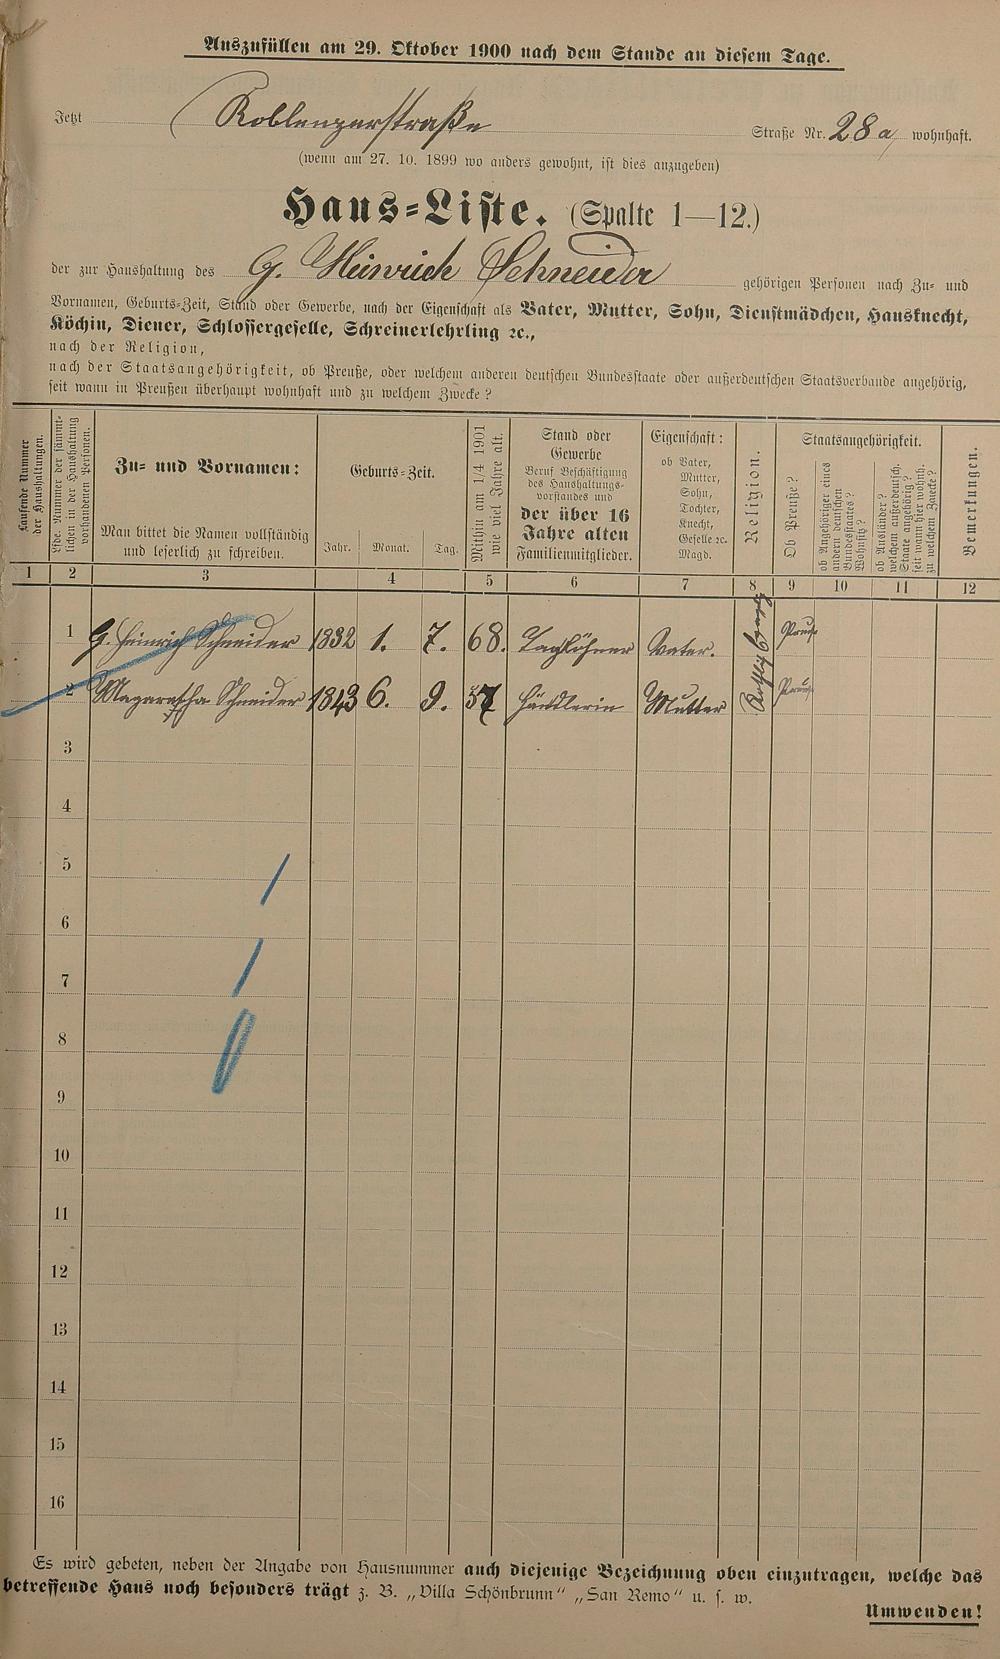 Auszufüllen am 29. Oktober 1900 nach dem Stande an diesem Tage.
Jetzt Koblenzerstraße Straße Nr. 28 a wohnhaft.
(wenn am 27. 10. 1899 wo anders gewohnt, ist dies anzugeben)
Haus-Liste. (Spalte 1—12.)
der zur Haushaltung des G. Heinrich Schneider gehörigen Personen nach Zu- und
Vornamen, Geburts-Zeit, Stand oder Gewerbe, nach der Eigenschaft als Vater, Mutter, Sohn, Dienstmädchen, Hausknecht,
Köchin, Diener, Schlossergeselle, Schreinerlehrling ꝛc.,
nach der Religion,
nach der Staatsangehörigkeit, ob Preuße, oder welchem anderen deutschen Bundesstaate oder außerdeutschen Staatsverbande angehörig,
seit wann in Preußen überhaupt wohnhaft und zu welchem Zwecke?
Laufende Nummer
der Haushaltungen.
Lfde. Nummer der sämmt-
lichen in der Haushaltung
vorhandenen Personen.
Zu- und Vornamen:
Man bittet die Namen vollständig
und leserlich zu schreiben.
Geburts-Zeit.
Jahr. Monat. Tag.
Mithin am 1/4 1901
wie viel Jahre alt.
Stand oder
Gewerbe
Beruf Beschäftigung
des Haushaltungs-
vorstandes und
der über 16
Jahre alten
Familienmitglieder.
Eigenschaft:
ob Vater,
Mutter,
Sohn,
Tochter,
Knecht,
Geselle ꝛc.
Magd.
Religion.
Staatsangehörigkeit.
Ob Preuße?
ob Angehöriger eines
andern deutschen
Bundesstaates?
Wohnsitz?
ob Ausländer?
welchem außerdeutsch.
Staate angehörig?
seit wann hier wohnh.
zu welchem Zwecke?
Bemerkungen.
1 2 3 4 5 6 7 8 9 10 11 12
1 G. Heinrich Schneider 1832 1. 7. 68. Taglöhner Vater.
2 Magaretha Schneider 1843 6. 9. 57 Händlerin Mutter
3
4
5
6
7
8
9
10
11
12
13
14
15
16
Es wird gebeten, neben der Angabe von Hausnummer auch diejenige Bezeichnung oben einzutragen, welche das
betreffende Haus noch besonders trägt z. B. „Villa Schönbrunn“ „San Remo“ u. s. w.
Umwenden!